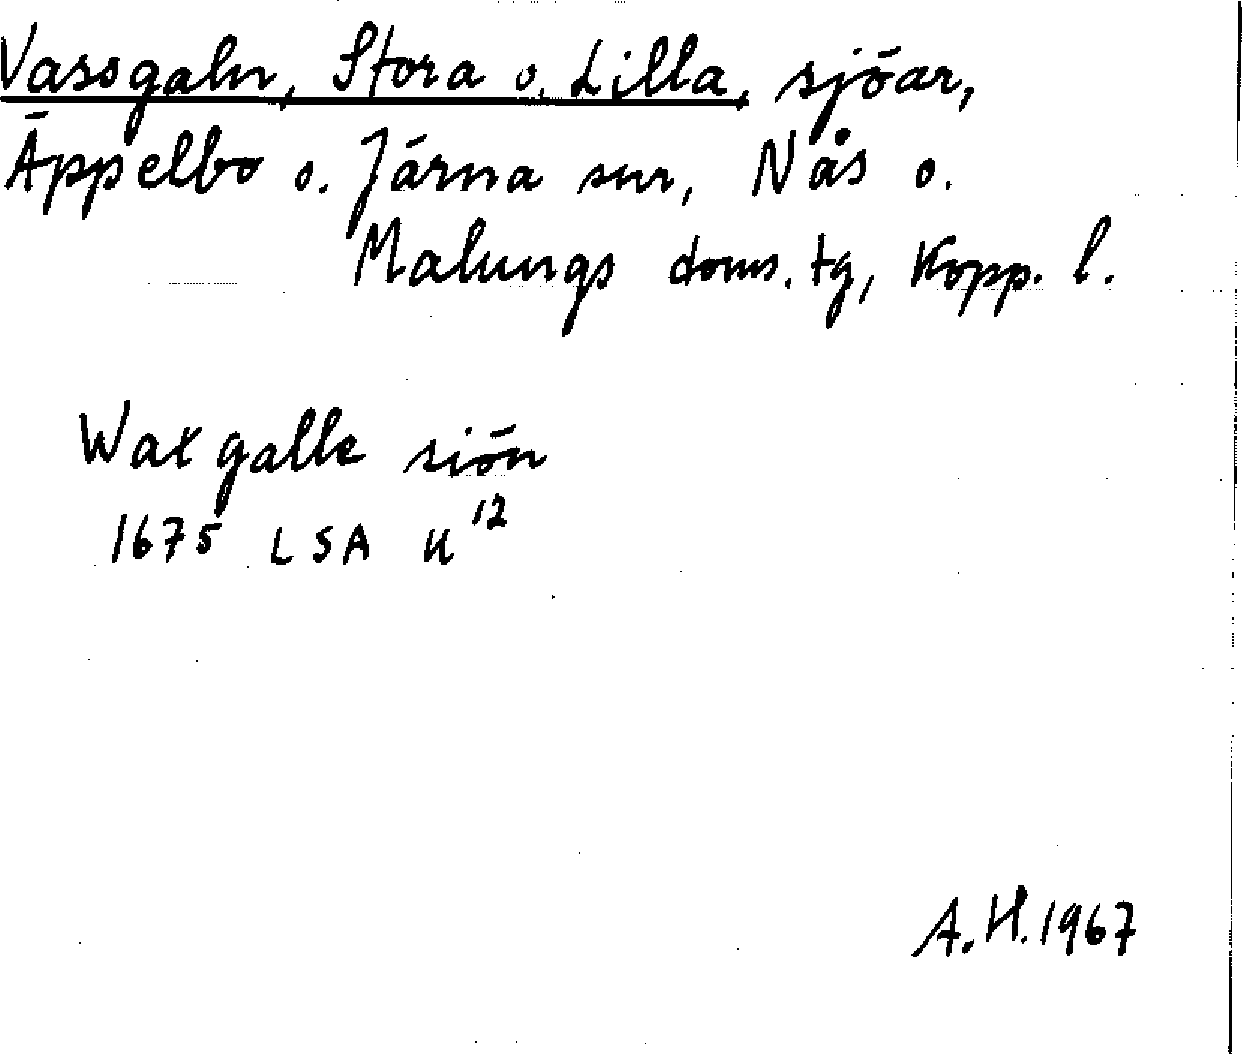 Vassgaln, Stora o. Lilla, sjöar,
Äppelbo o. Järna snr, Nås o.
Malungs doms. tg, Kopp. l.
Waxgalle siön
1675 LSA U 12
A.H. 1967